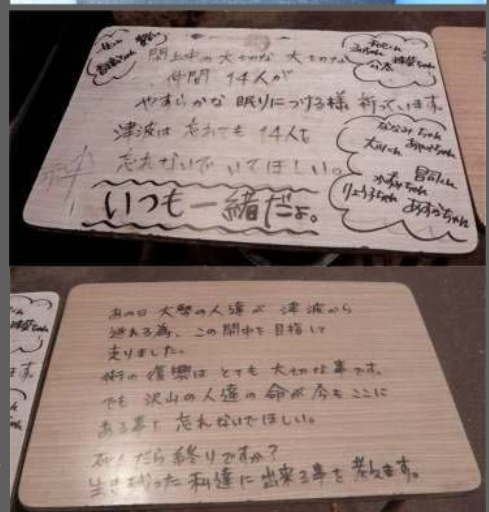 閖上中の大切な大切な
仲間14人が
やすらかな眠りにつける様祈っています。
津波は忘れても14人を
忘れないでいてほしい。
いつも一緒だよ。
ななみちゃん
りょう子ちゃん
あの日大勢の人達が津波から
逃れる為、この閖中を目指して
走りました。
街の復興はとても大切な事です。
でも沢山の人達の命が今もここに
ある事を忘れないでほしい。
死んだら終りですか?
生き残った私達に出来る事を考えます。